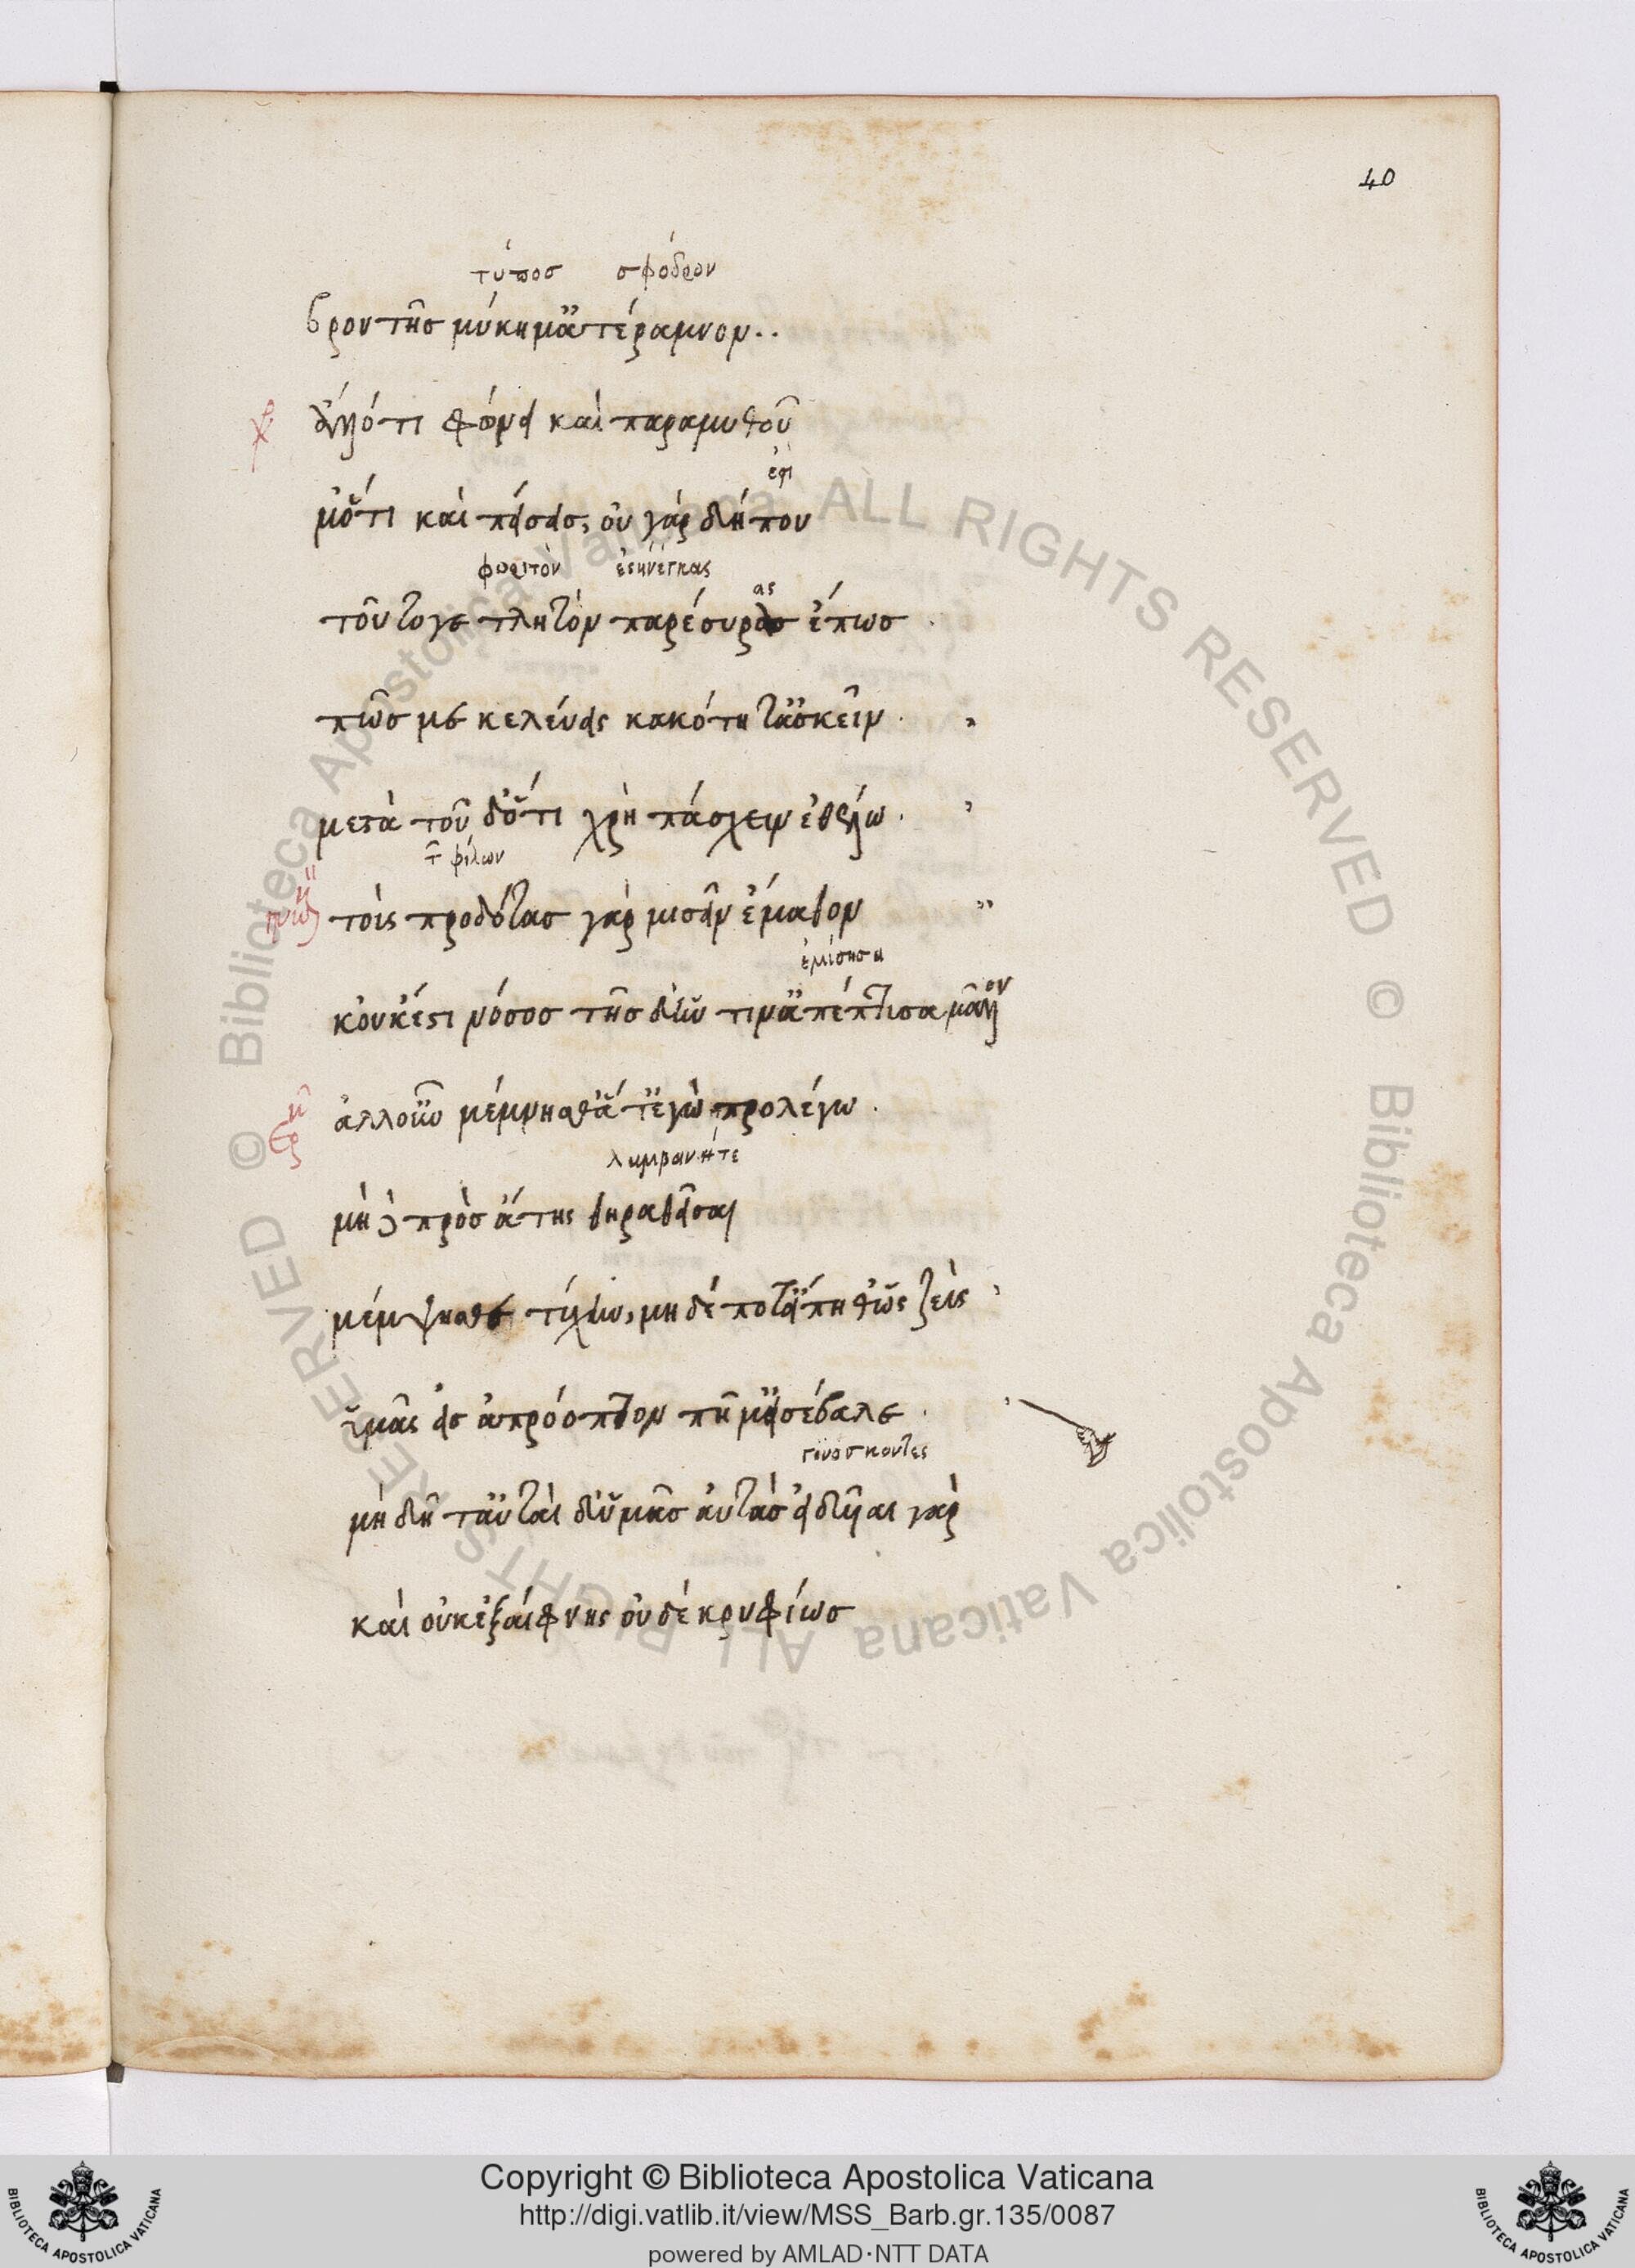 40
τύπος σφόδρον
βροντῆς μύκημ' ἀτέραμνον..
ἄλλό τι φώνει καὶ παραμυθοῦ
μ' ὅ τι καὶ πείσεις, οὐ γὰρ δήπου
φορητὸν
τοῦτό γε τλητὸν παρέσυρας ἔπως.
πῶς με κελεύεις κακότητ' ἀσκεῖν.
μετὰ τοῦδ' ὅ τι χρὴ πάσχειν ἐθέλω.
τ̃ φίλων
τοὺς προδότας γὰρ μισεῖν ἔμαθον
ἐμίσησα
κοὐκ ἔστι νόσος τῆσδ' ἥντιν' ἀπέπτυσα μᾶλλον
ἀλλ' οὖν μέμνησθ' ἅ τ' ἐγὼ προλέγω.
μὴ δὲ πρὸς ἄτης θηραθεῖσαι
μέμψησθε τύχην, μηδέ ποτ' εἴπηθ' ὡς Ζεὺς
ὑμᾶς εἰς ἀπρόοπτον πῆμ' εἰσέβαλε.
γινοσκοντες
μὴ δῆτ' αὐταὶ δ' ὑμᾶς αὐτάς εἰδυῖαι γὰρ
καὶ οὐκ ἐξαίφνης οὐδὲ κρυφίως
ALL RIGHTS RESERVED © Biblioteca Apostolica Vaticana
Copyright © Biblioteca Apostolica Vaticana
http://digi.vatlib.it/view/MSS_Barb.gr.135/0087
powered by AMLAD·NTT DATA
BIBLIOTECA APOSTOLICA VATICANA
BIBLIOTECA APOSTOLICA VATICANA